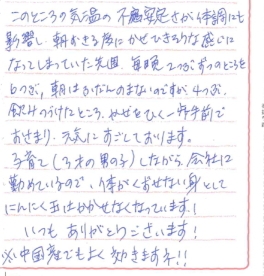 このところの気温の不安定さが体調にも
影響し 朝おきる度にかぜひきそうな感じに
なってしまっていた先週、毎晩2つぶずつのところを
6つぶ、朝はふだんのまないのですが4つぶ、
飲みつづけたところ、かぜをひく一歩手前で
おさまり、元気にすごしております。
子育て(3才の男の子)しながら、会社に
勤めているので、体がくずせない身として
にんにく玉はかかせなくなっています!
いつも ありがとうございます!
※中国産でもよく効きますネ!!